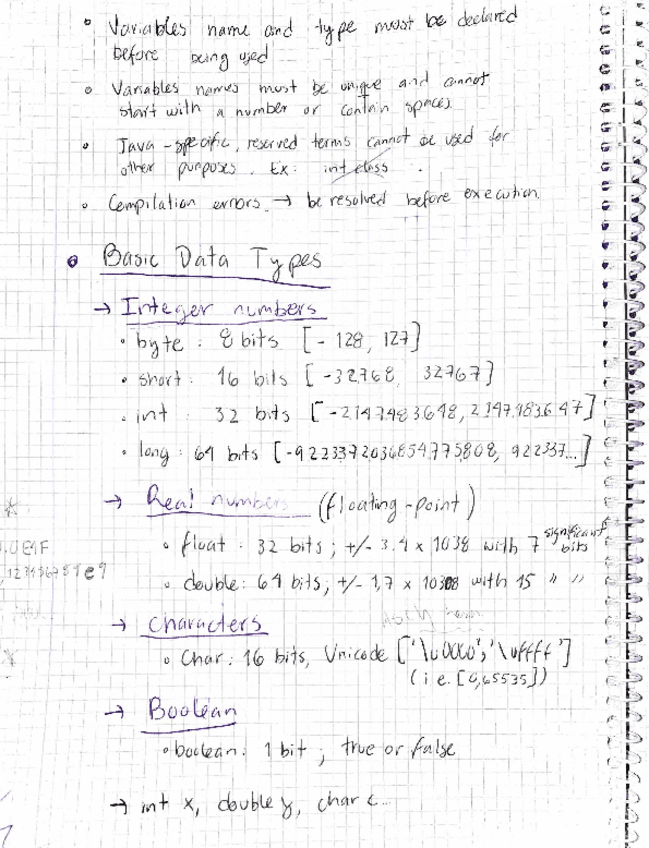 • Variables name and type must be declared
before being used
• Variables names must be unique and cannot
start with a number or contain spaces
• Java-specific, reserved terms cannot be used for
other purposes. Ex: int class .
• Compilation errors → be resolved before execution.
• Basic Data Types
→ Integer numbers
• byte : 8 bits [- 128, 127]
• short : 16 bits [-32768, 32767]
• int : 32 bits [-2147483648, 2147483647]
• long : 64 bits [-9223372036854775808, 922337...]
→ Real numbers (floating-point)
• float : 32 bits ; +/- 3,4 x 1038 with 7 significant bits
• double: 64 bits; +/- 1,7 x 10308 with 15 " "
→ Characters
• Char: 16 bits, Unicode ['\u0000','\uffff']
(i e. [0,65535])
→ Boolean
• boolean: 1 bit ; true or false
→ int x, double y, char c...